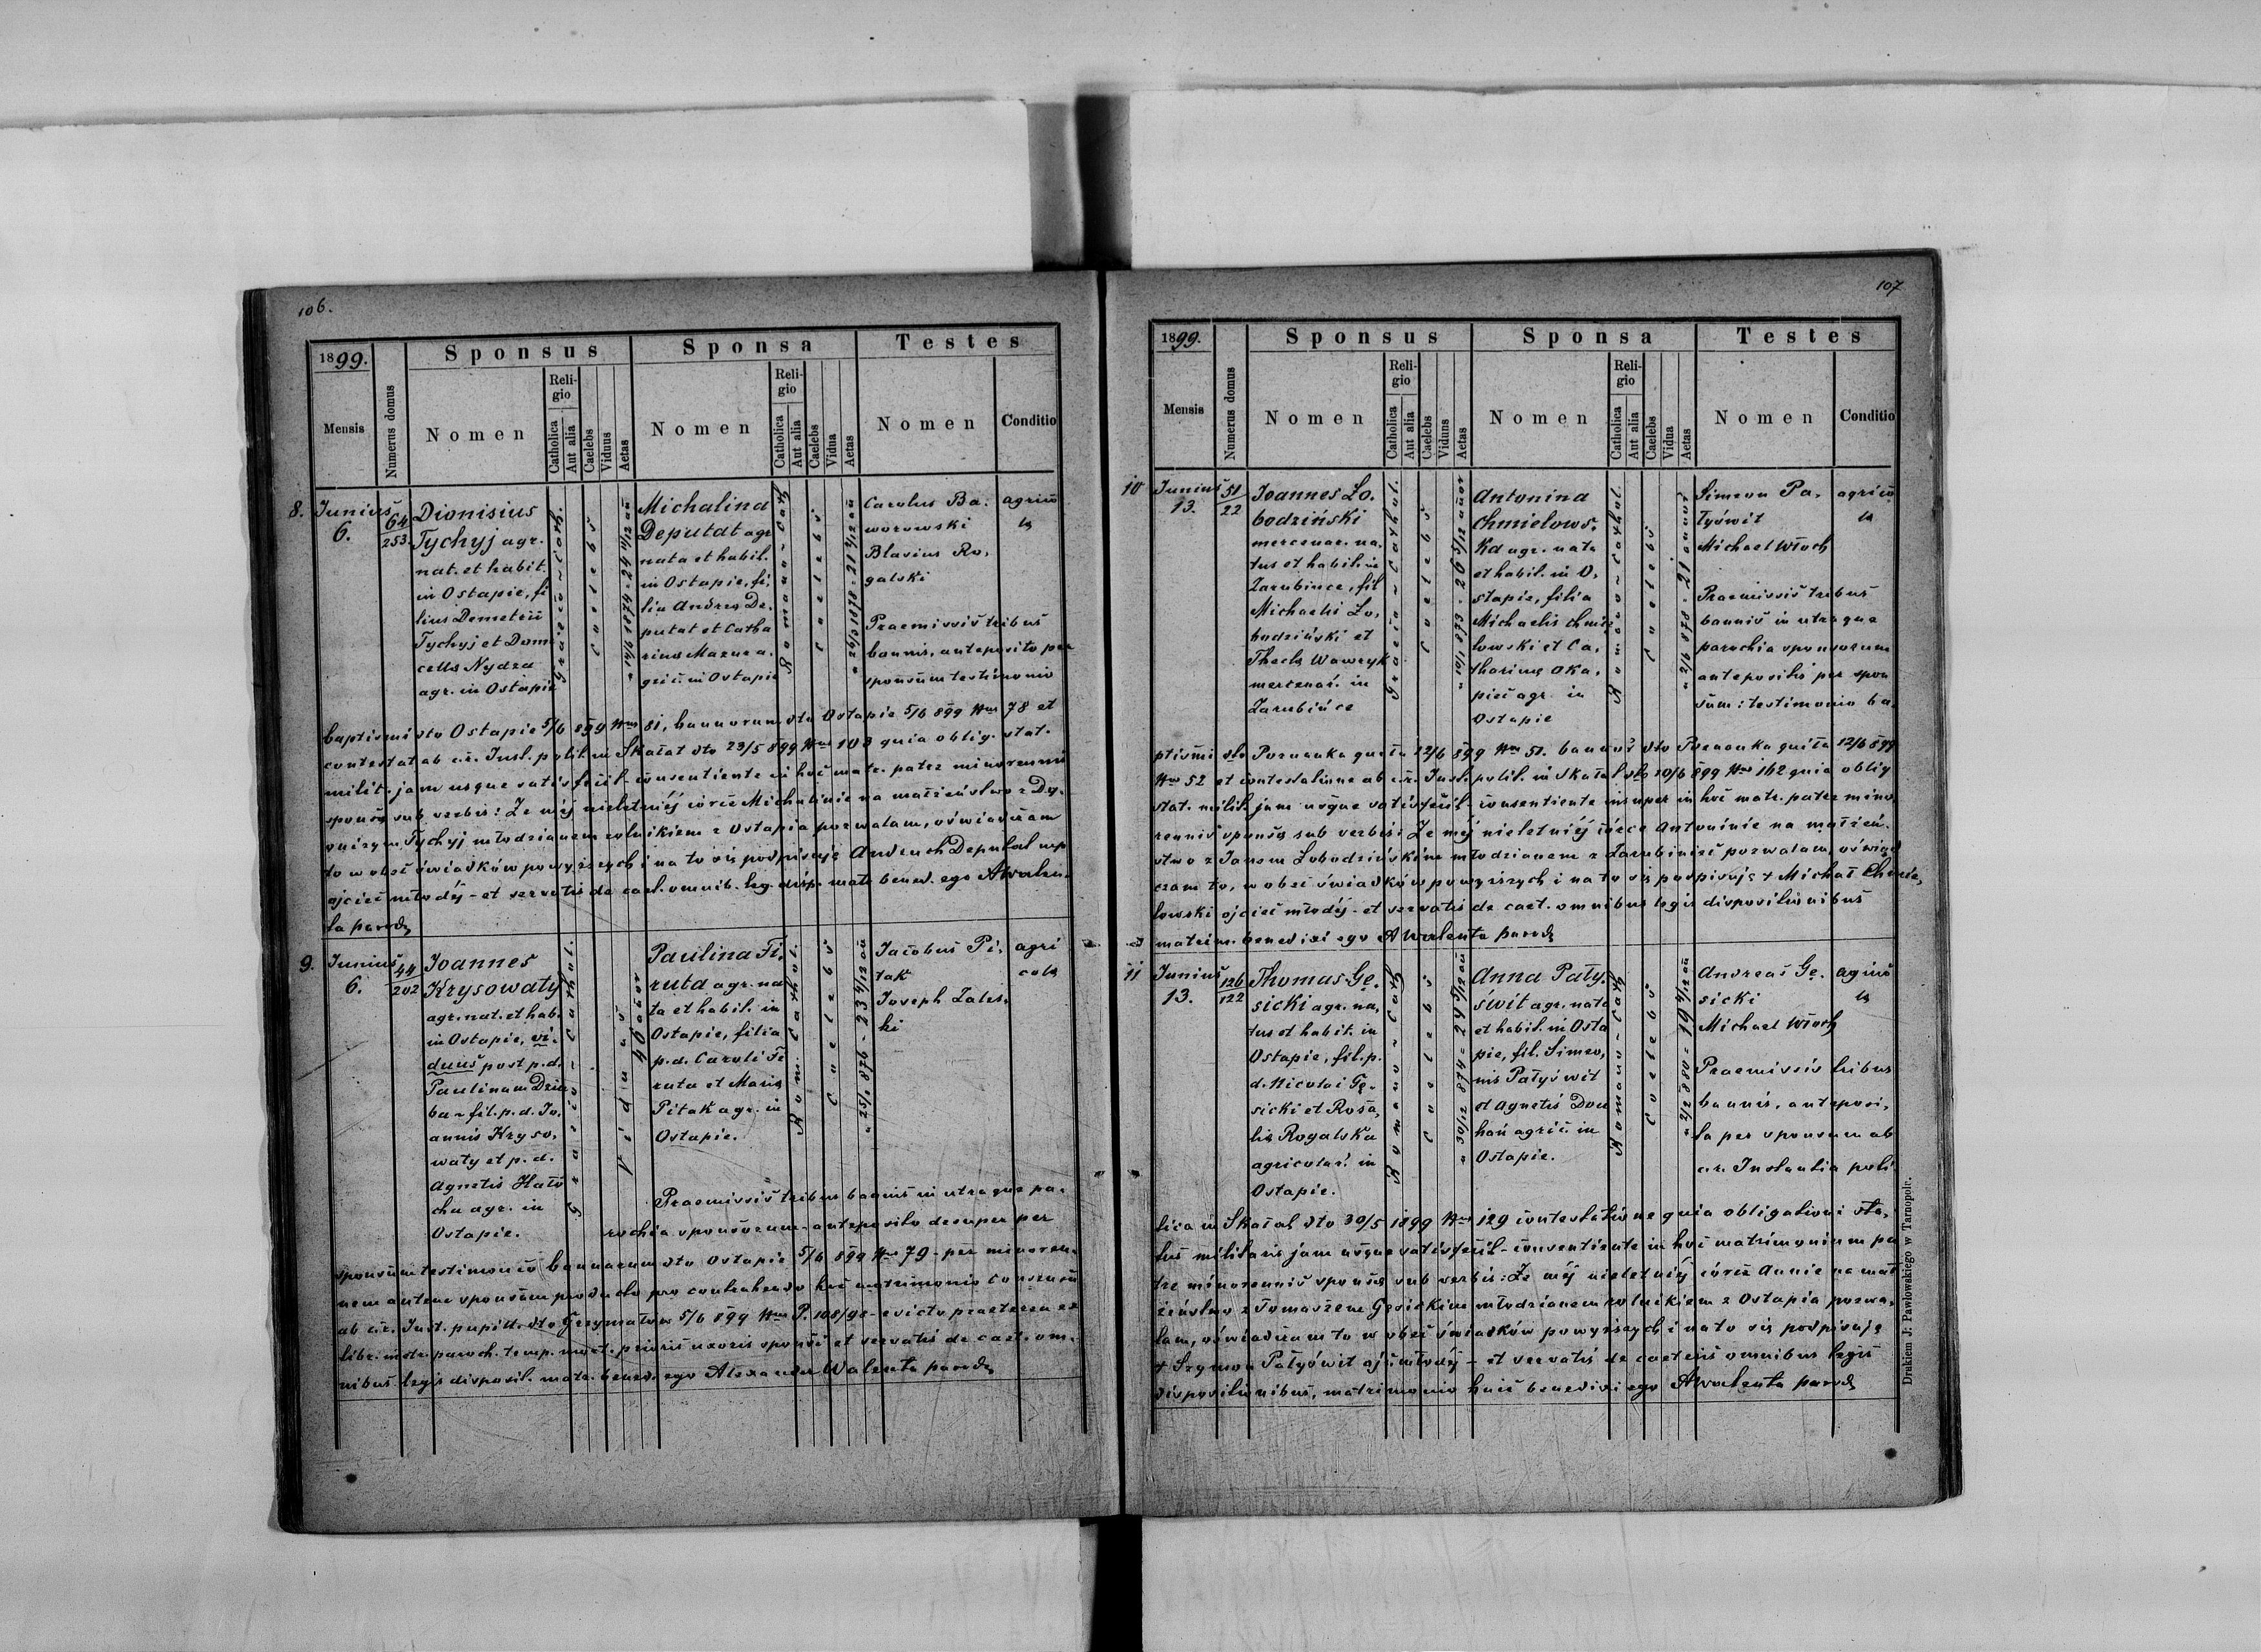 106.
1899.
Mensis
Numerus domus
Sponsus
Nomen
Religio
Catholica
Aut alia
Caelebs
Viduus
Aetas
Sponsa
Nomen
Religio
Catholica
Aut alia
Caelebs
Vidua
Aetas
Testes
Nomen
Conditio
8.
Junius
6.
64
253.
Dionisius
Tychyj agr.
nat. et habit.
in Ostapie, fi
lius Demetrii
Tychyj et Domi
cella Nydza
agr. in Ostapie
Graeco-cath.
coelebs
Michalina
Deputat agr
nata et habit.
in Ostapie, fi,
lia Andrea De,
putat et Catha
rina Mazur a.
gric. in Ostapie
Romano-cath
coelebs
Carolus Ba.
worowski
Blasius Ro,
galski
agrico
la
Praemissis tribus
bannis, anteposito per
sponsum testimonio
baptismi dto Ostapie 5/6 899 Nm 81, bannorum dto Ostapie 5/6 899 Nm 78 et
contestat ab c.r. Inst. polit. in Skałat dto 23/5 899 Nm 103 quia oblig. stat.
milit. jam usque satisfecit - consentiente in hoc matr. patre minorennis
sponsa sub verbis: Ze méj nieletniéj córce Michalinie na małżeństwo z Dy,
onizym Tychyj młodzianem rolnikiem z Ostapia pozwalam, oświadczam
to w obec świadków powyższych i na to się podpisuję Andruch Deputat mp
ojciec młodéj - et servatis de caet. omnib. leg. disp. matr. bened. ego AWalen,
ta paroch
9.
Junius
6.
44
202
Joannes
Krysowaty
agr. nat. et hab.
in Ostapie, vi,
duus post p.d.
Paulinam Dziu
ba - fil. p.d. Jo,
annis Kryso,
waty et p.d.
Agnetis Hała
cha agr. in
Ostapie.
Graeco-Cathol.
Viduus
Paulina Fi,
ruta agr. na
ta et habit. in
Ostapie, filia
p.d. Caroli Fi
ruta et Maria
Pitak agr. in
Ostapie.
Rom. cathol.
Coelebs
Jacobus Pi,
tak
Joseph Zales,
ki
agri
cola
Praemissis tribus bannis in utraque pa,
rochia sponsorum - anteposito desuper per
sponsum testimonio bannorum dto Ostapie 5/6 899 Nm 79 - per minoren,
nem autem sponsam producto pro contrahendo hoc matrimonio consensu
ab c.r. Inst. pupill. dto Grzymałów 5/6 899 Nm P. 108/98 - evicto praeterea ex
libr. metr. paroch. temp. mort. prioris uxoris sponsi et servatis de caet. om,
nibus legis disposit. matr. bened. ego Alexander Walenta paroch
107
1899.
Mensis
Numerus domus
Sponsus
Nomen
Religio
Catholica
Aut alia
Caelebs
Viduus
Aetas
Sponsa
Nomen
Religio
Catholica
Aut alia
Caelebs
Vidua
Aetas
Testes
Nomen
Conditio
10
Junius
13.
51
22
Joannes Ło.
bodziński
mercenar. na,
tus et habit. in
Zarubince, fil
Michaelis Ło,
bodziński et
Thecla Wawryk
mercenar. in
Zarubince
Graeco-cathol.
Coelebs
Antonina
Chmielows,
ka agr. nata
et habit. in O,
stapie, filia
Michaelis Chmie
lowski et Ca,
tharina Oka,
pieć agr. in
Ostapie
Romano-cathol.
Coelebs
Simeon Pa,
łyświt
Michael Włoch
agrico
la
Praemissis tribus
bannis in utraque
parochia sponsorum
antepositis per spon
sum: testimonio ba,
ptismi dto Poznanka gniła 12/6 899 Nm 51. bannor. dto Poznanka gniła 12/6 899
Nm 52 et contestatione ab c.r. Inst. polit. in Skałat dto 10/6 899 Nm 162 quia oblig
stat. milit. jam usque satisfecit - consentiente insuper in hoc matr. patre mino,
rennis sponsa sub verbis: Ze méj nieletniéj córce Antoninie na małżeń,
stwo z Janem Łobodzińskim młodzianem z Zarubiniec pozwalam, oświad
czam to, w obec świadków powyższych i na to się podpisuję + Michał Chmie,
lowski ojciec młodéj - et servatis de caet. omnibus legis dispositionibus
matrim. benedixi ego AWalenta paroch
11
Junius
13.
126
122
Thomas Gę,
sicki agr. na,
tus et habit. in
Ostapie, fil. p.
d. Nicolai Gę,
sicki et Rosa,
lia Rogalska
agricolar. in
Ostapie.
Romano-cath
Coelebs
Anna Pały,
świt agr. nata
et habit. in Osta
pie, fil. Simeo,
nis Pałyświt
et Agnetis Dou
hań agric. in
Ostapie.
Romano-cath
Coelebs
Andreas Gę,
sicki
Michael Włoch
agrico
la
Praemissis tribus
bannis, anteposi,
ta per sponsum ab
c.r. Instantia poli
tica in Skałat dto 30/5 1899 Nm 129 contestatione quia obligationi sta,
tus militaris jam usque satisfecit - consentiente in hoc matrimonium pa
tre minorennis sponsa sub verbis: Ze méj nieletniéj córce Annie na mał
żeństwo z Tomaszem Gęsickim młodzianem rolnikiem z Ostapia pozwa,
lam, oświadczam to w obec świadków powyższych i na to się podpisuję
+ Szymon Pałyświt ojc. młodéj - et servatis de caeteris omnibus legis
dispositionibus, matrimonio huic benedixi ego AWalenta paroch
Drukiem J. Pawłowskiego w Tarnopolu.